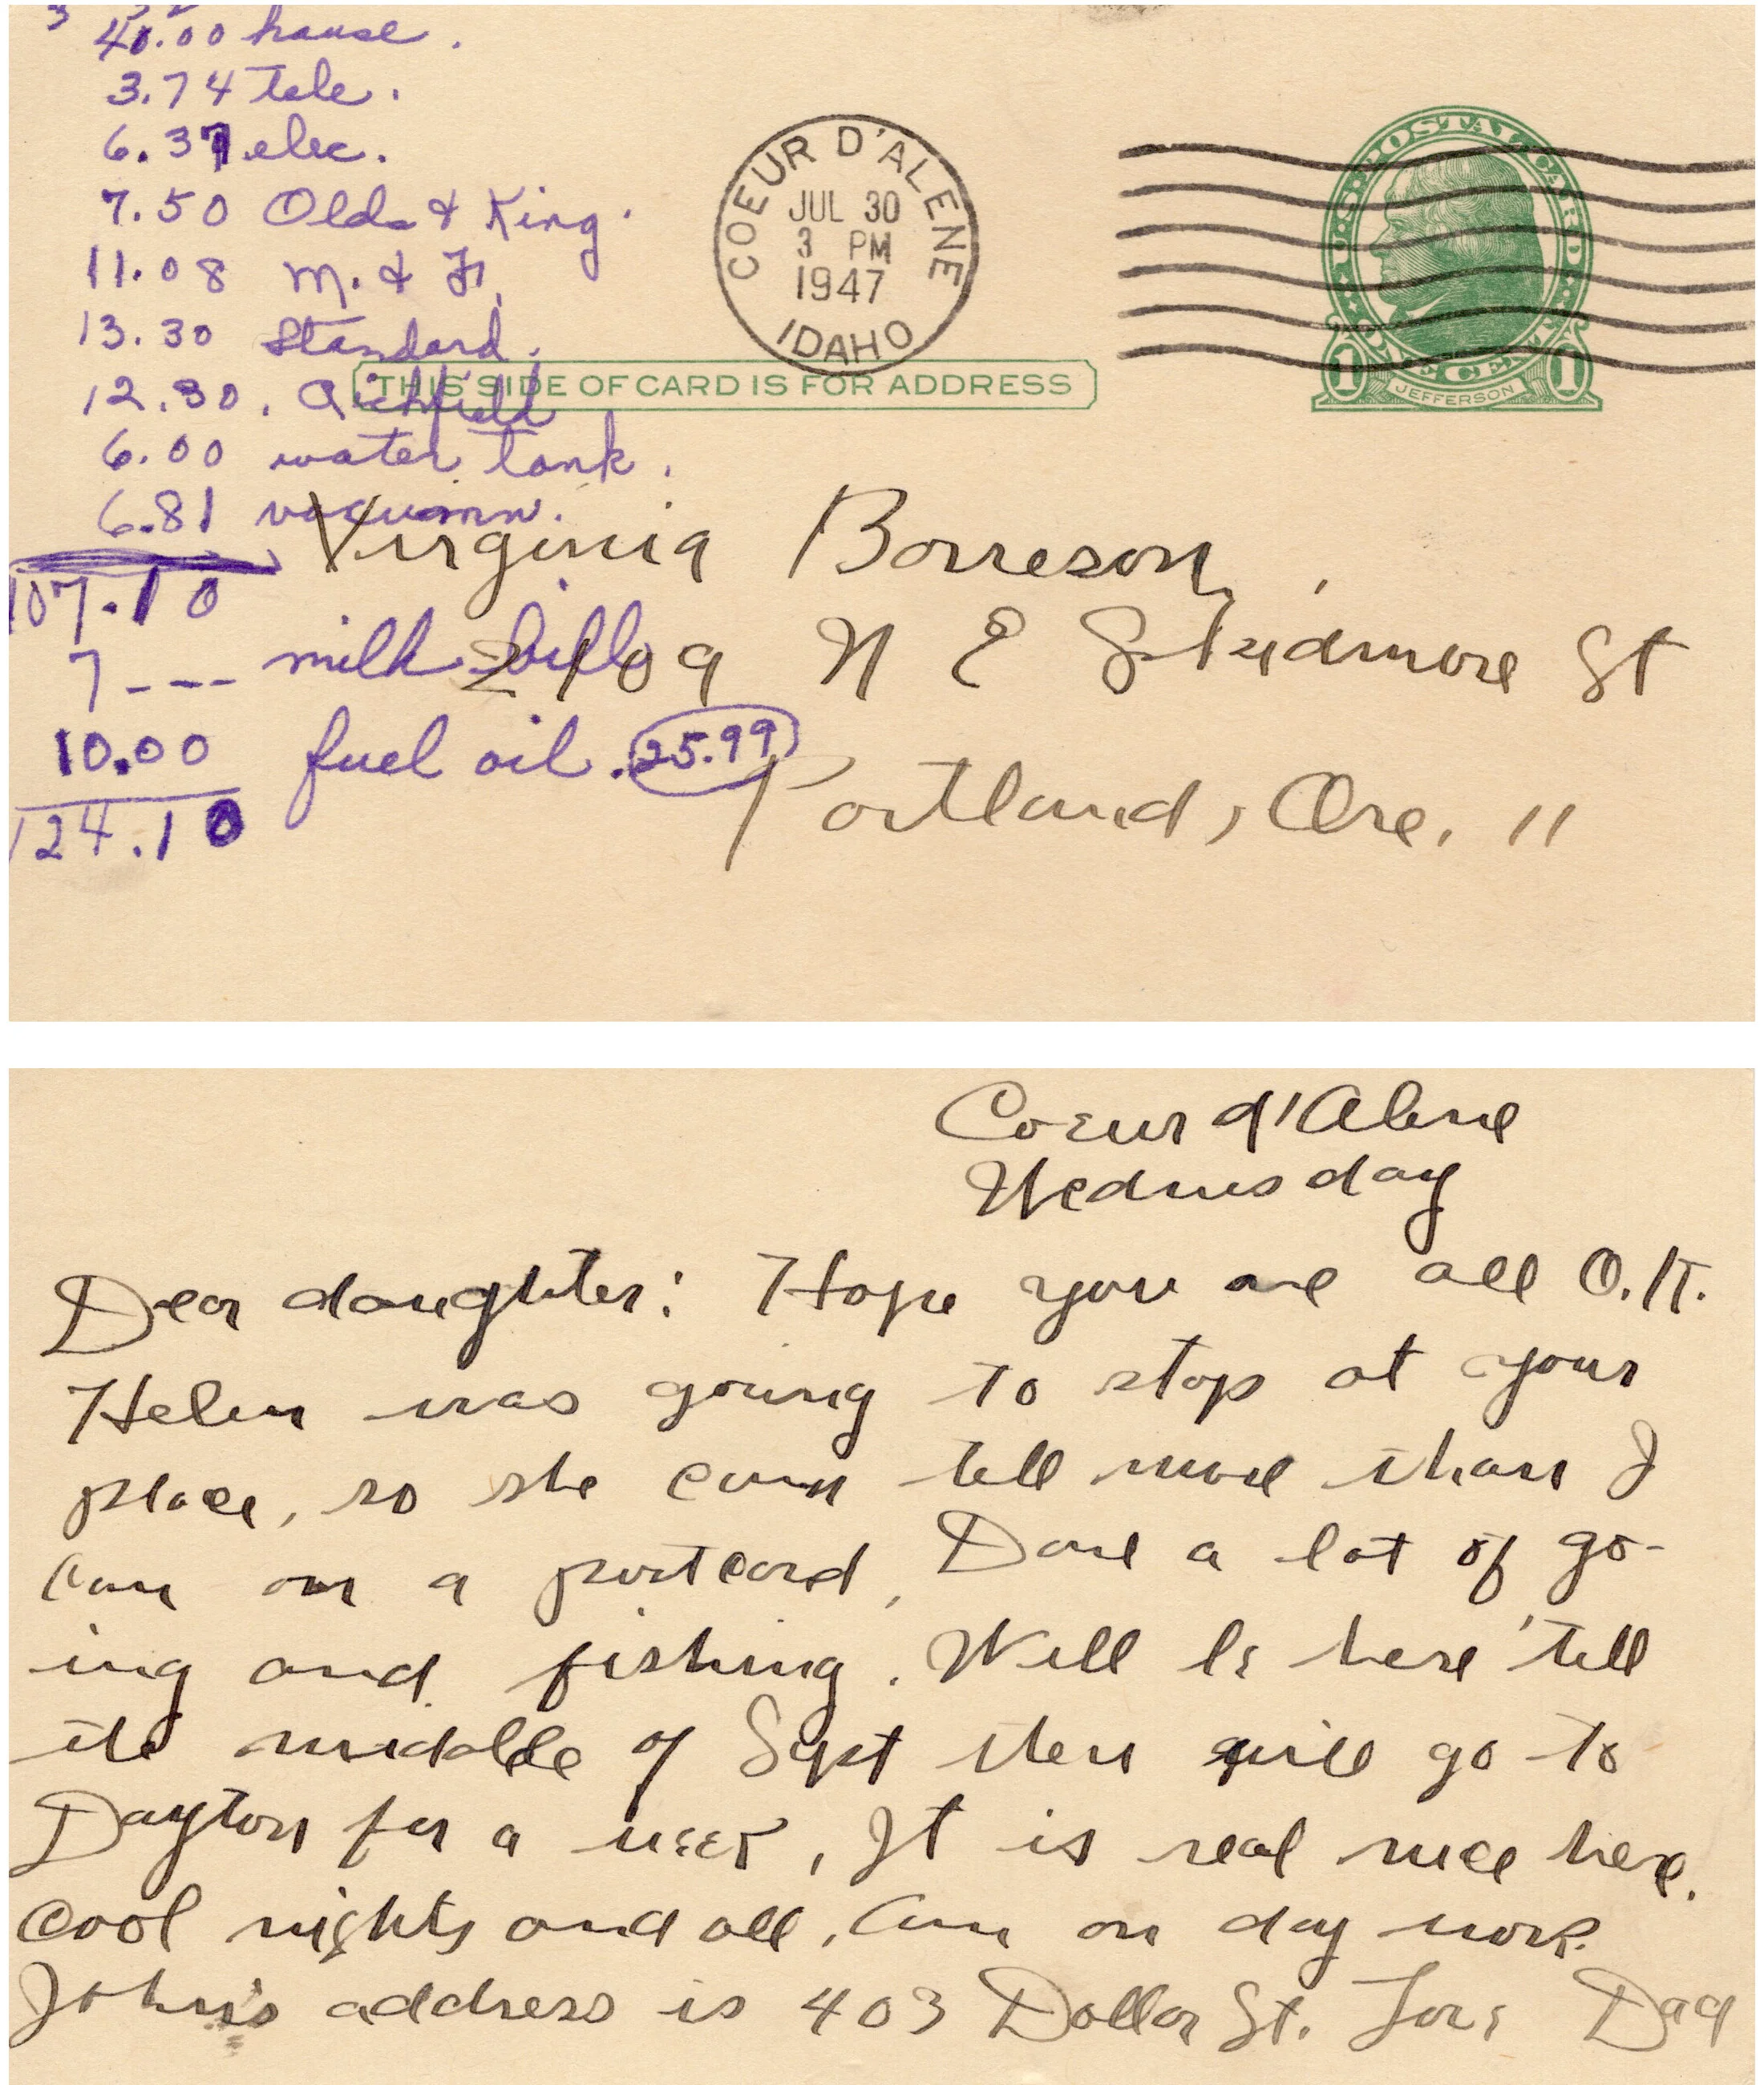 40.00 house.
3.74 tele.
6.37 elec.
7.50 Olds & King.
11.08 M. & F.
13.30 Standard.
12.30. Richfield
6.00 water tank.
6.81 vacuumn.
107.10
7--- milk bill
10.00 fuel oil. 25.99
124.10
COEUR D'ALENE
JUL 30
3 PM
1947
IDAHO
U.S. POSTAL CARD
ONE CENT
1 1
JEFFERSON
THIS SIDE OF CARD IS FOR ADDRESS
Virginia Borreson,
2109 N E Skidmore St
Portland, Ore. 11
Coeur d'Alene
Wednesday
Dear daughter: Hope you are all O.K.
Helen was going to stop at your
place, so she can tell more than I
can on a postcard, Done a lot of go-
ing and fishing. Will be here 'till
the middle of Sept then will go to
Dayton for a week, It is real nice here.
Cool nights and all, Am on day work.
John's address is 403 Dollar St. Love Dad